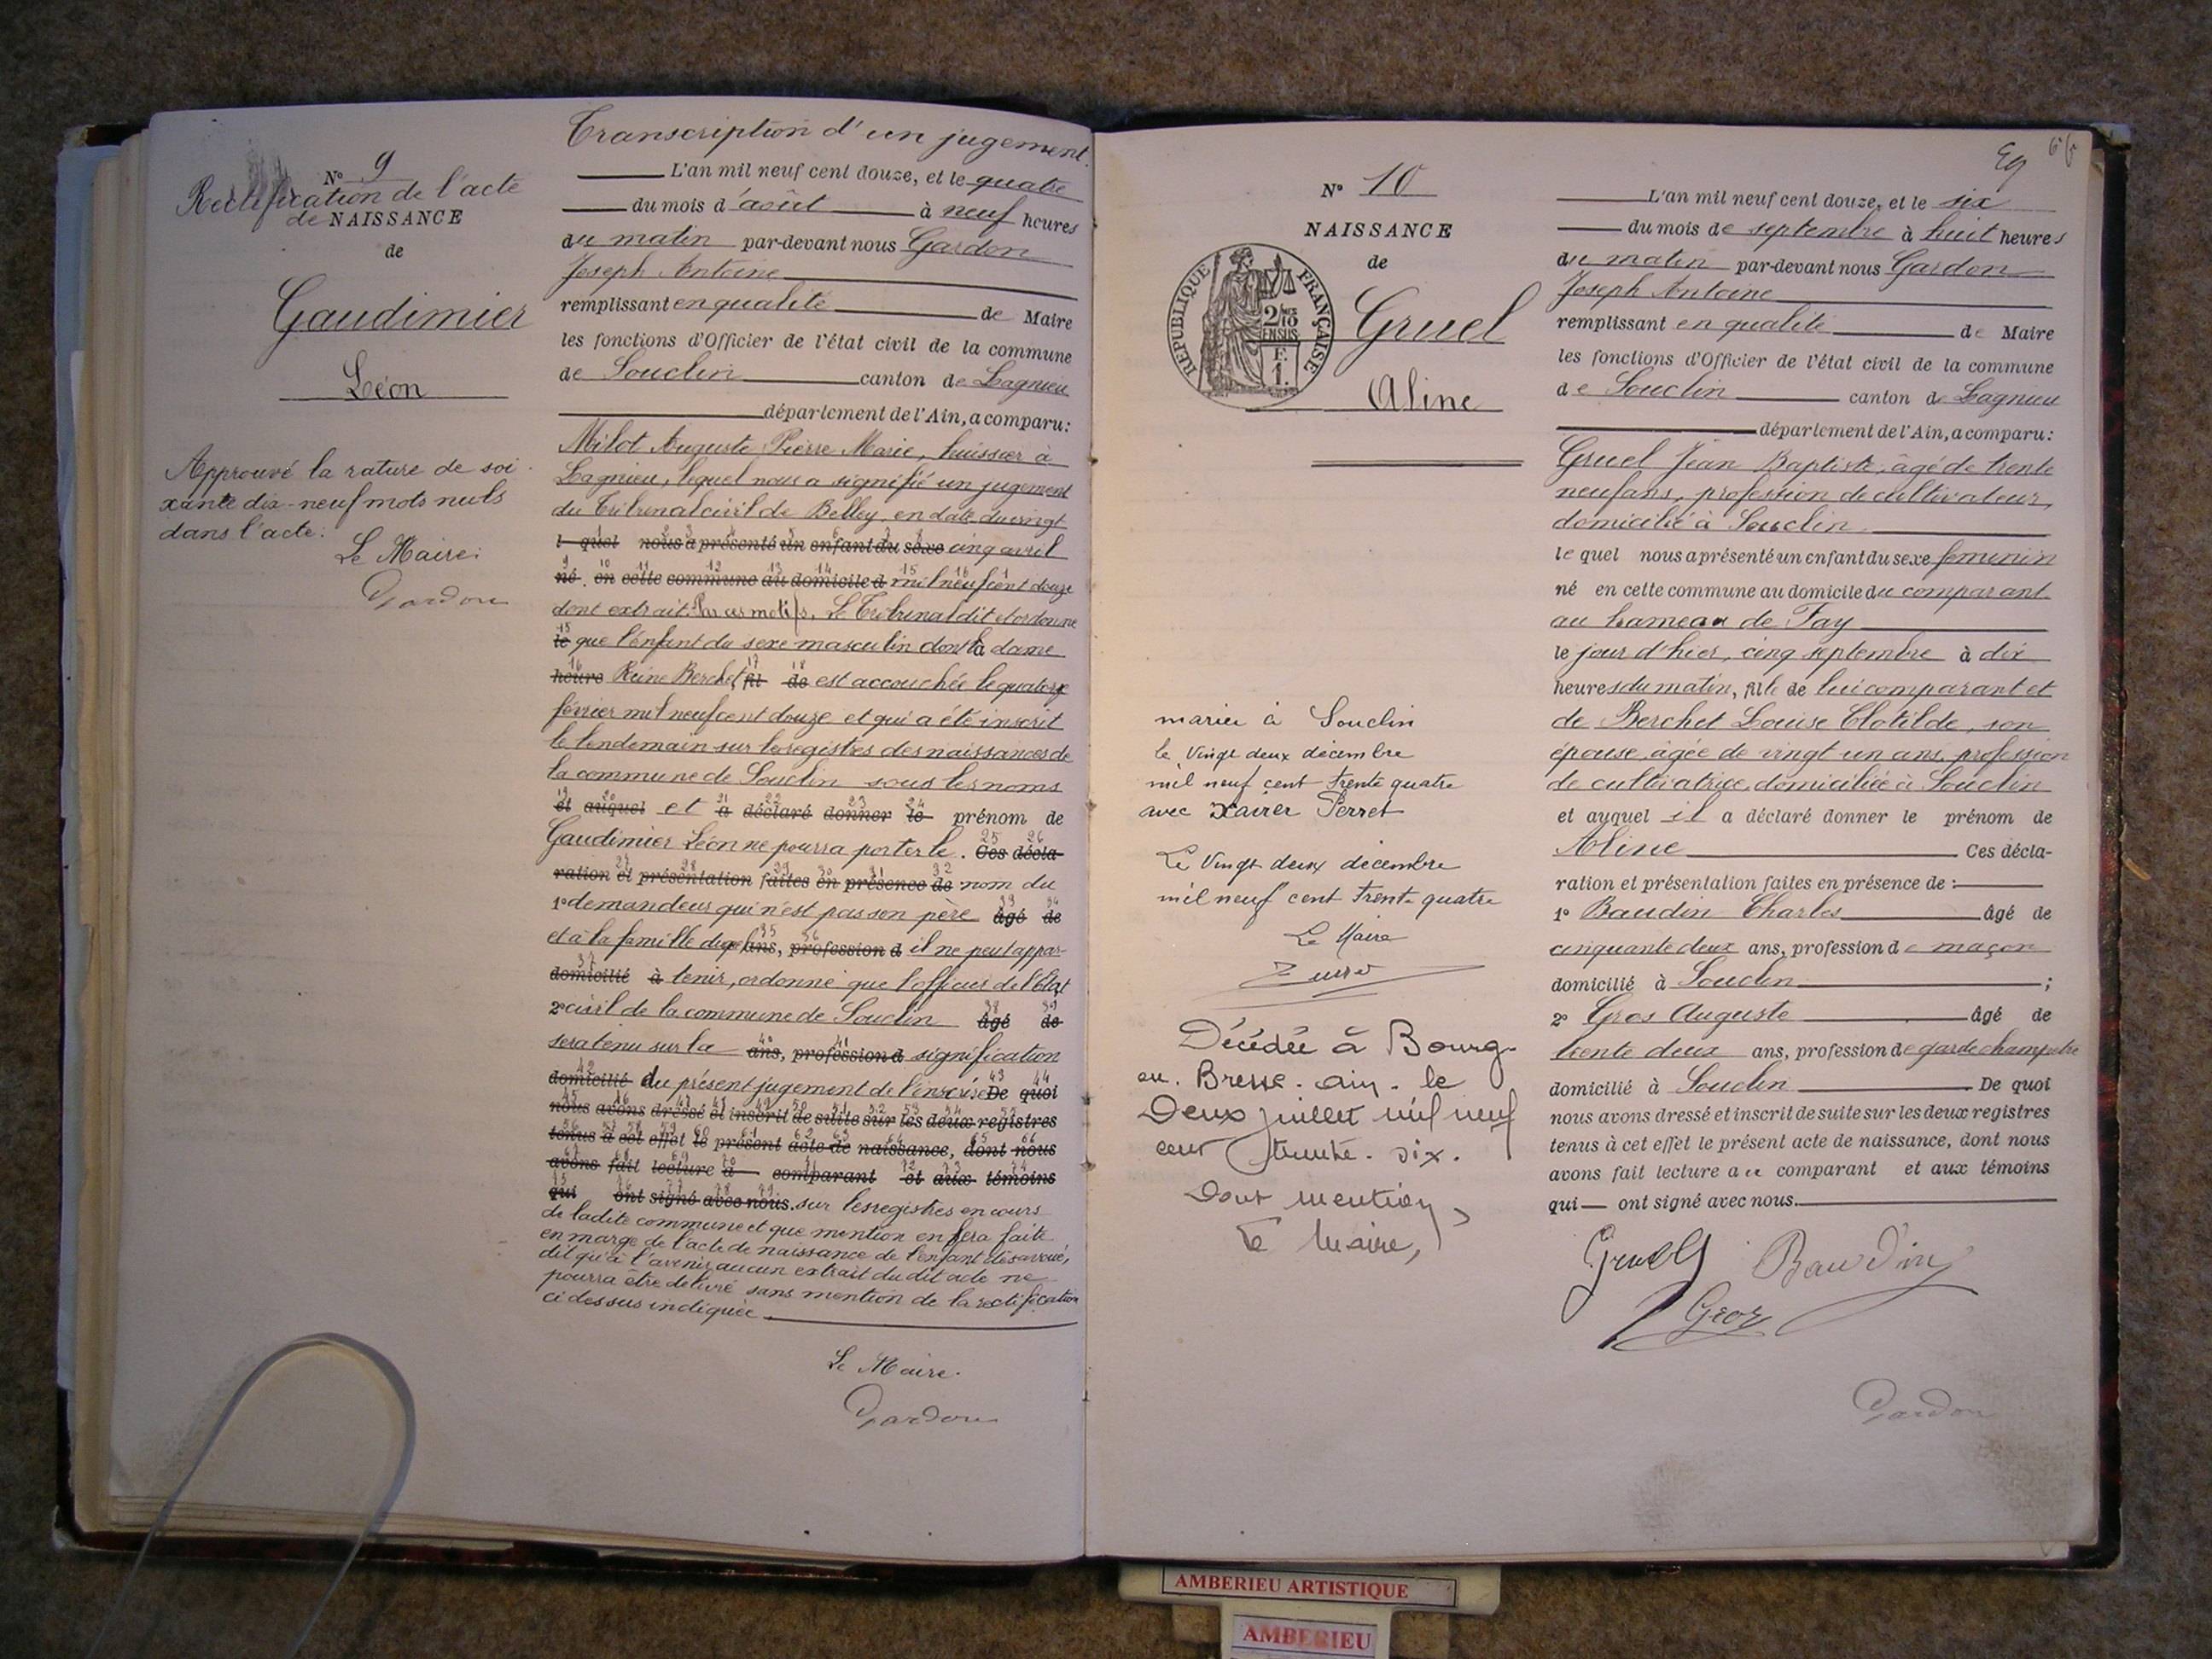 Nº 9
Rectification de l'acte
de NAISSANCE
de
Gaudimier
Léon
Approuvé la rature de soi-
xante dix-neuf mots nuls
dans l'acte:
Le Maire:
Gardon
Transcription d'un jugement.
L'an mil neuf cent douze, et le quatre
du mois d'août à neuf heures
du matin par-devant nous Gardon
Joseph Antoine
remplissant en qualité de Maire
les fonctions d'Officier de l'état civil de la commune
de Souclin canton de Lagnieu
département de l'Ain, a comparu:
Milot Auguste Pierre Marie, huissier à
Lagnieu, lequel nous a signifié un jugement
du Tribunal civil de Belley, en date du vingt
l quel nous a présenté un enfant du sexe cinq avril
né en cette commune au domicile d mil neuf cent douze
dont extrait: Par ces motifs, Le Tribunal dit et ordonne
le que l'enfant du sexe masculin dont la dame
heure Reine Berchet, fil de est accouchée le quatorze
février mil neuf cent douze et qui a été inscrit
le lendemain sur les registres des naissances de
la commune de Souclin sous les noms
et auquel et a déclaré donner le prénom de
Gaudimier Léon ne pourra porter le. Ces décla-
ration et présentation faites en présence de nom du
1º demandeur qui n'est pas son père âgé de
et à la famille duquel ans, profession d il ne peut appar-
domicilié à tenir, ordonne que l'officier de l'Etat
2º civil de la commune de Souclin âgé de
sera tenu sur la ans, profession d signification
domicilié du présent jugement de l'inscrire De quoi
nous avons dressé et inscrit de suite sur les deux registres
tenus à cet effet le présent acte de naissance, dont nous
avons fait lecture a comparant et aux témoins
qui ont signé avec nous. sur les registres en cours
de ladite commune et que mention en sera faite
en marge de l'acte de naissance de l'enfant désavoué,
dit qu'à l'avenir aucun extrait du dit acte ne
pourra être délivré sans mention de la rectification
ci dessus indiquée
Le Maire.
Gardon
Nº 10
NAISSANCE
de
REPUBLIQUE FRANÇAISE
2/10
EN SUS
F.
1.
Gruel
Aline
mariée à Souclin
le Vingt deux décembre
mil neuf cent trente quatre
avec Xavier Perret
Le Vingt deux décembre
mil neuf cent trente quatre
Le Maire
Décédée à Bourg-
en-Bresse-Ain-le
Deux juillet mil neuf
cent trente-six.
Dont mention,
Le Maire,
69
L'an mil neuf cent douze, et le six
du mois de septembre à huit heures
du matin par-devant nous Gardon
Joseph Antoine
remplissant en qualité de Maire
les fonctions d'Officier de l'état civil de la commune
de Souclin canton de Lagnieu
département de l'Ain, a comparu:
Gruel Jean Baptiste, âgé de trente
neuf ans, profession de cultivateur,
domicilié à Souclin
le quel nous a présenté un enfant du sexe féminin
né en cette commune au domicile du comparant
au hameau de Fay
le jour d'hier, cinq septembre à dix
heures du matin, fille de lui comparant et
de Berchet Louise Clotilde, son
épouse, âgée de vingt un ans, profession
de cultivatrice, domiciliée à Souclin
et auquel il a déclaré donner le prénom de
Aline Ces décla-
ration et présentation faites en présence de :
1º Baudin Charles âgé de
cinquante deux ans, profession de maçon
domicilié à Souclin ;
2º Gros Auguste âgé de
trente deux ans, profession de garde champêtre
domicilié à Souclin De quoi
nous avons dressé et inscrit de suite sur les deux registres
tenus à cet effet le présent acte de naissance, dont nous
avons fait lecture au comparant et aux témoins
qui ont signé avec nous.
Gruel Baudin
Gros
Gardon
AMBERIEU ARTISTIQUE
AMBERIEU